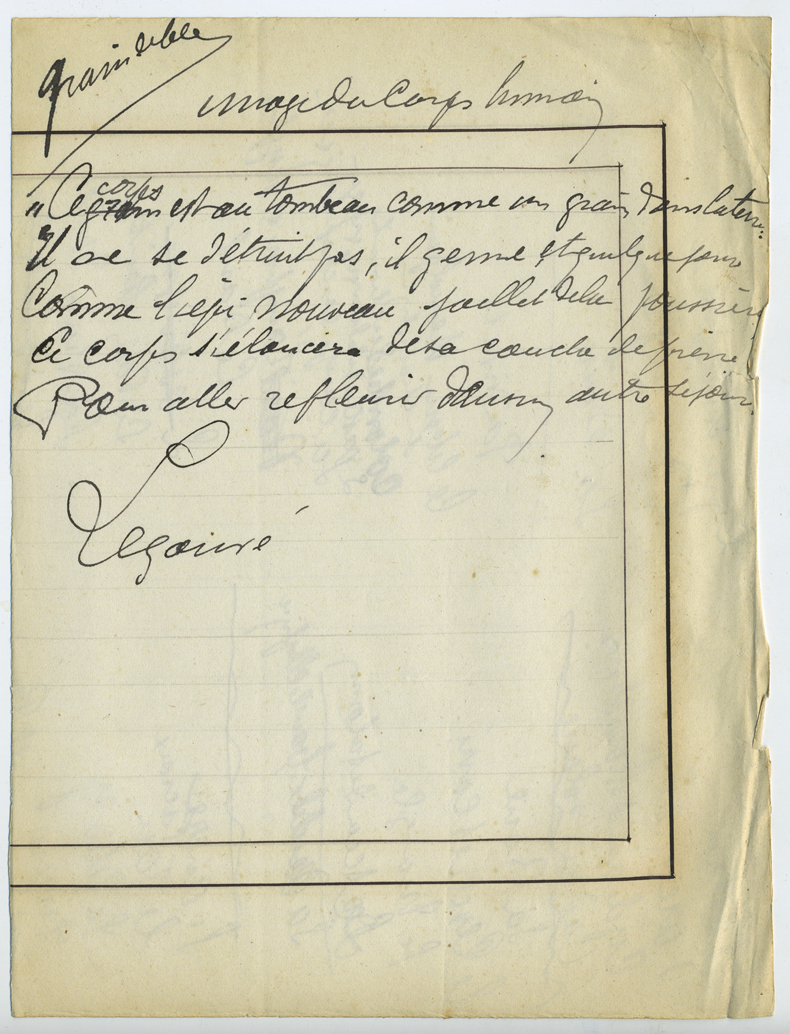 grain de blé
image du Corps humain
"Ce corps est au tombeau comme un grain dans la terre.
Il ne se détruit pas, il germe, et quelque jour
Comme l'épi nouveau jaillet de la poussière
Ce corps s'élancera de sa couche de pierre
Pour aller refleurir dans un autre séjour.
Legouvé